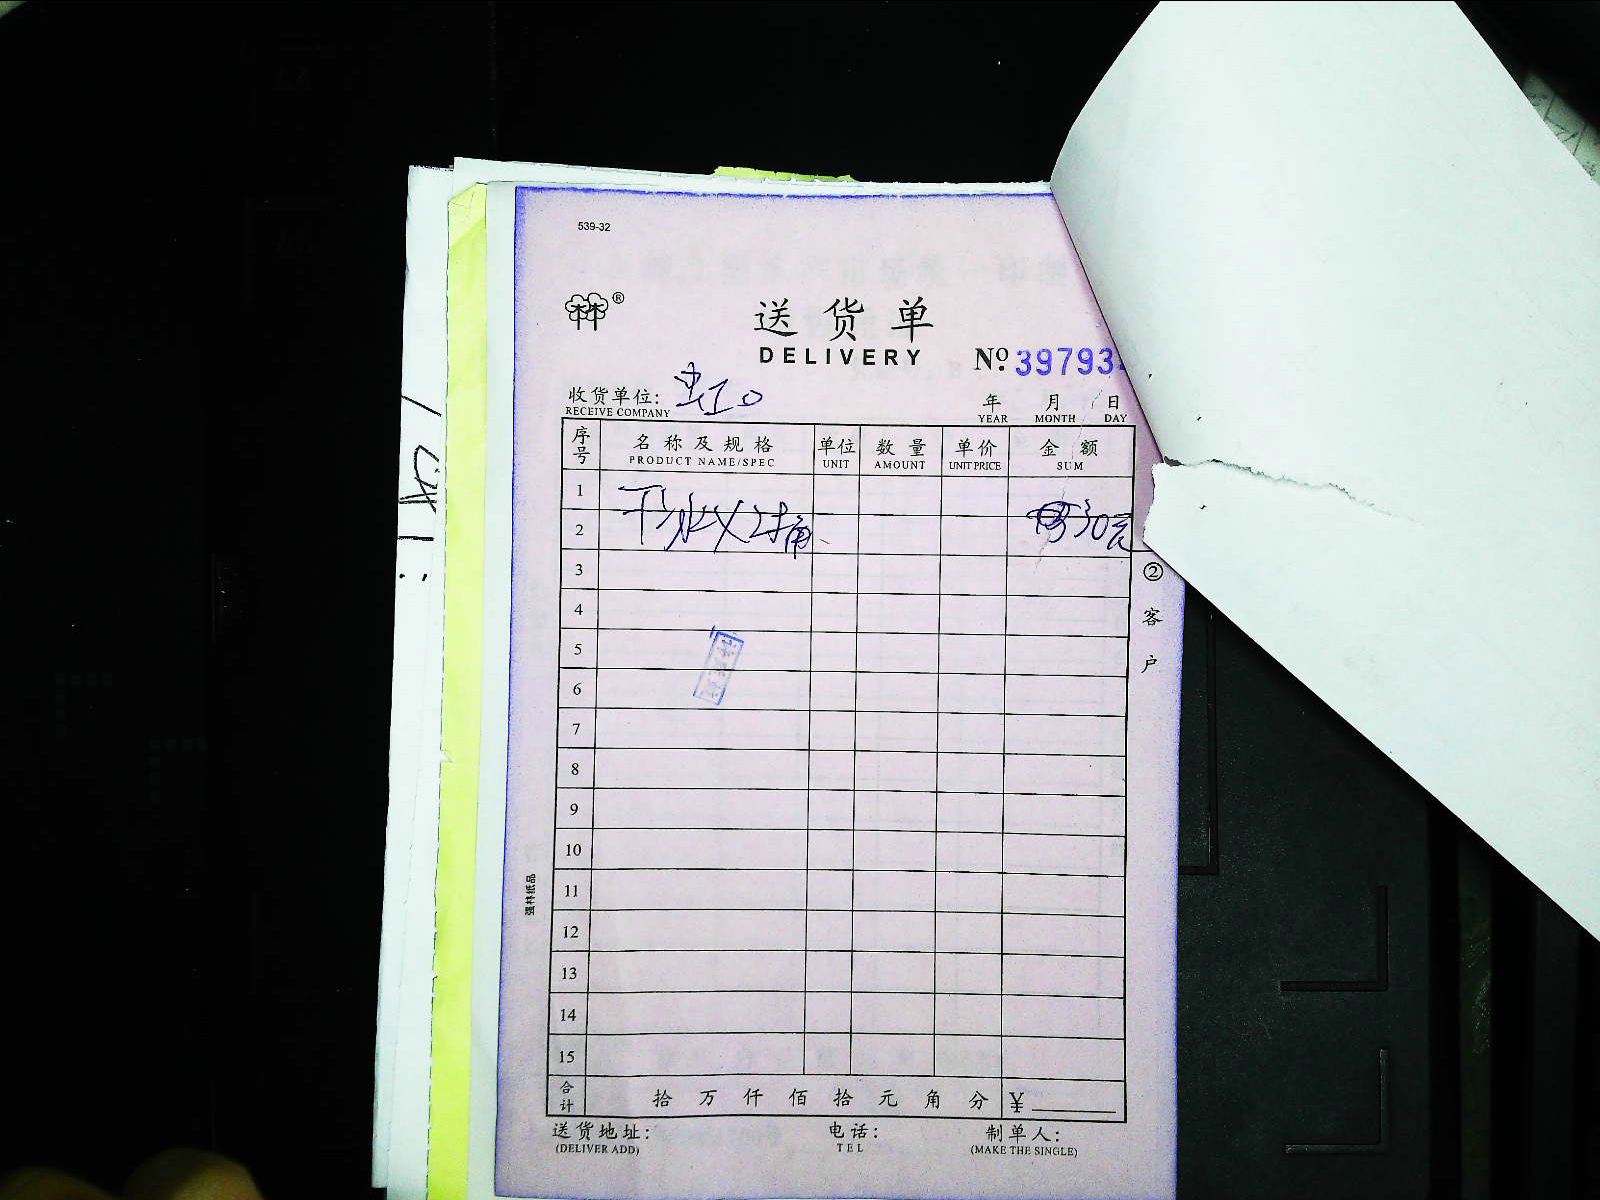 539-32
林林®
送货单
DELIVERY
Nº 39793
收货单位: 虫工0
RECEIVE COMPANY
年 月 日
YEAR MONTH DAY
序号 名称及规格 单位 数量 单价 金额
PRODUCT NAME/SPEC UNIT AMOUNT UNIT PRICE SUM
1
2
30元
3
② 客户
4
5
6
7
8
9
强林纸品
10
11
12
13
14
15
合计 拾 万 仟 佰 拾 元 角 分 ¥
送货地址: 电话: 制单人:
(DELIVER ADD) TEL (MAKE THE SINGLE)